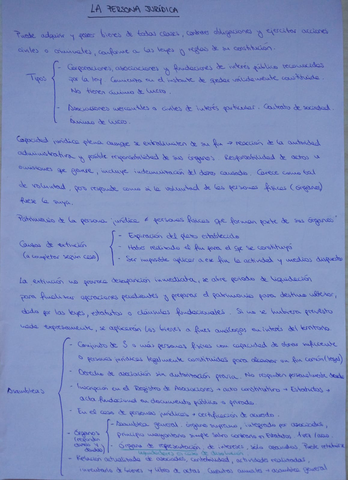 LA PERSONA JURÍDICA
Puede adquirir y poseer bienes de todas clases, contraer obligaciones y ejercitar acciones
civiles o criminales, conforme a las leyes y reglas de su constitución.
Tipos
- Corporaciones, asociaciones y fundaciones de interés público reconocidas
por la ley. Comienza en el instante de quedar válidamente constituida.
No tienen ánimo de lucro.
- Asociaciones mercantiles o civiles de interés particular. Contrato de sociedad.
Ánimo de lucro.
Capacidad jurídica plena aunque se extralimiten de su fin → reacción de la autoridad
administrativa y posible responsabilidad de sus órganos. Responsabilidad de actos u
omisiones que genere, incluye indemnización del daño causado. Carece como tal
de voluntad, pero responde como si la voluntad de las personas físicas (órganos)
fuese la suya.
Patrimonio de la persona jurídica ≠ personas físicas que forman parte de sus órganos
Causas de extinción
(a completar según caso)
- Expiración del plazo establecido
- Haber realizado el fin para el que se constituyó
- Ser imposible aplicar a ese fin la actividad y medios dispuestos
La extinción no provoca desaparición inmediata, se abre periodo de liquidación
para finalizar operaciones pendientes y preparar el patrimonio para destino ulterior,
dado por las leyes, estatutos o cláusulas fundacionales. Si no se hubiera previsto
nada expresamente, se aplicarán los bienes a fines análogos en interés del territorio.
- Conjunto de 3 o más personas físicas con capacidad de obrar suficiente
o personas jurídicas legalmente constituidas para alcanzar un fin común (legal)
- Derecho de asociación sin autorización previa. No
- Inscripción en el Registro de Asociaciones → acta constitutiva + Estatutos +
acta fundacional en documento público o privado
- En el caso de personas jurídicas → certificación de acuerdo
- Órganos
- Asamblea general. Órgano supremo, integrado por asociados,
- Órgano de representación de intereses, solo asociados.
- Relación actualizada de asociados, contabilidad, actividades realizadas,
inventario de bienes y libro de actas. Cuentas anuales → asamblea general